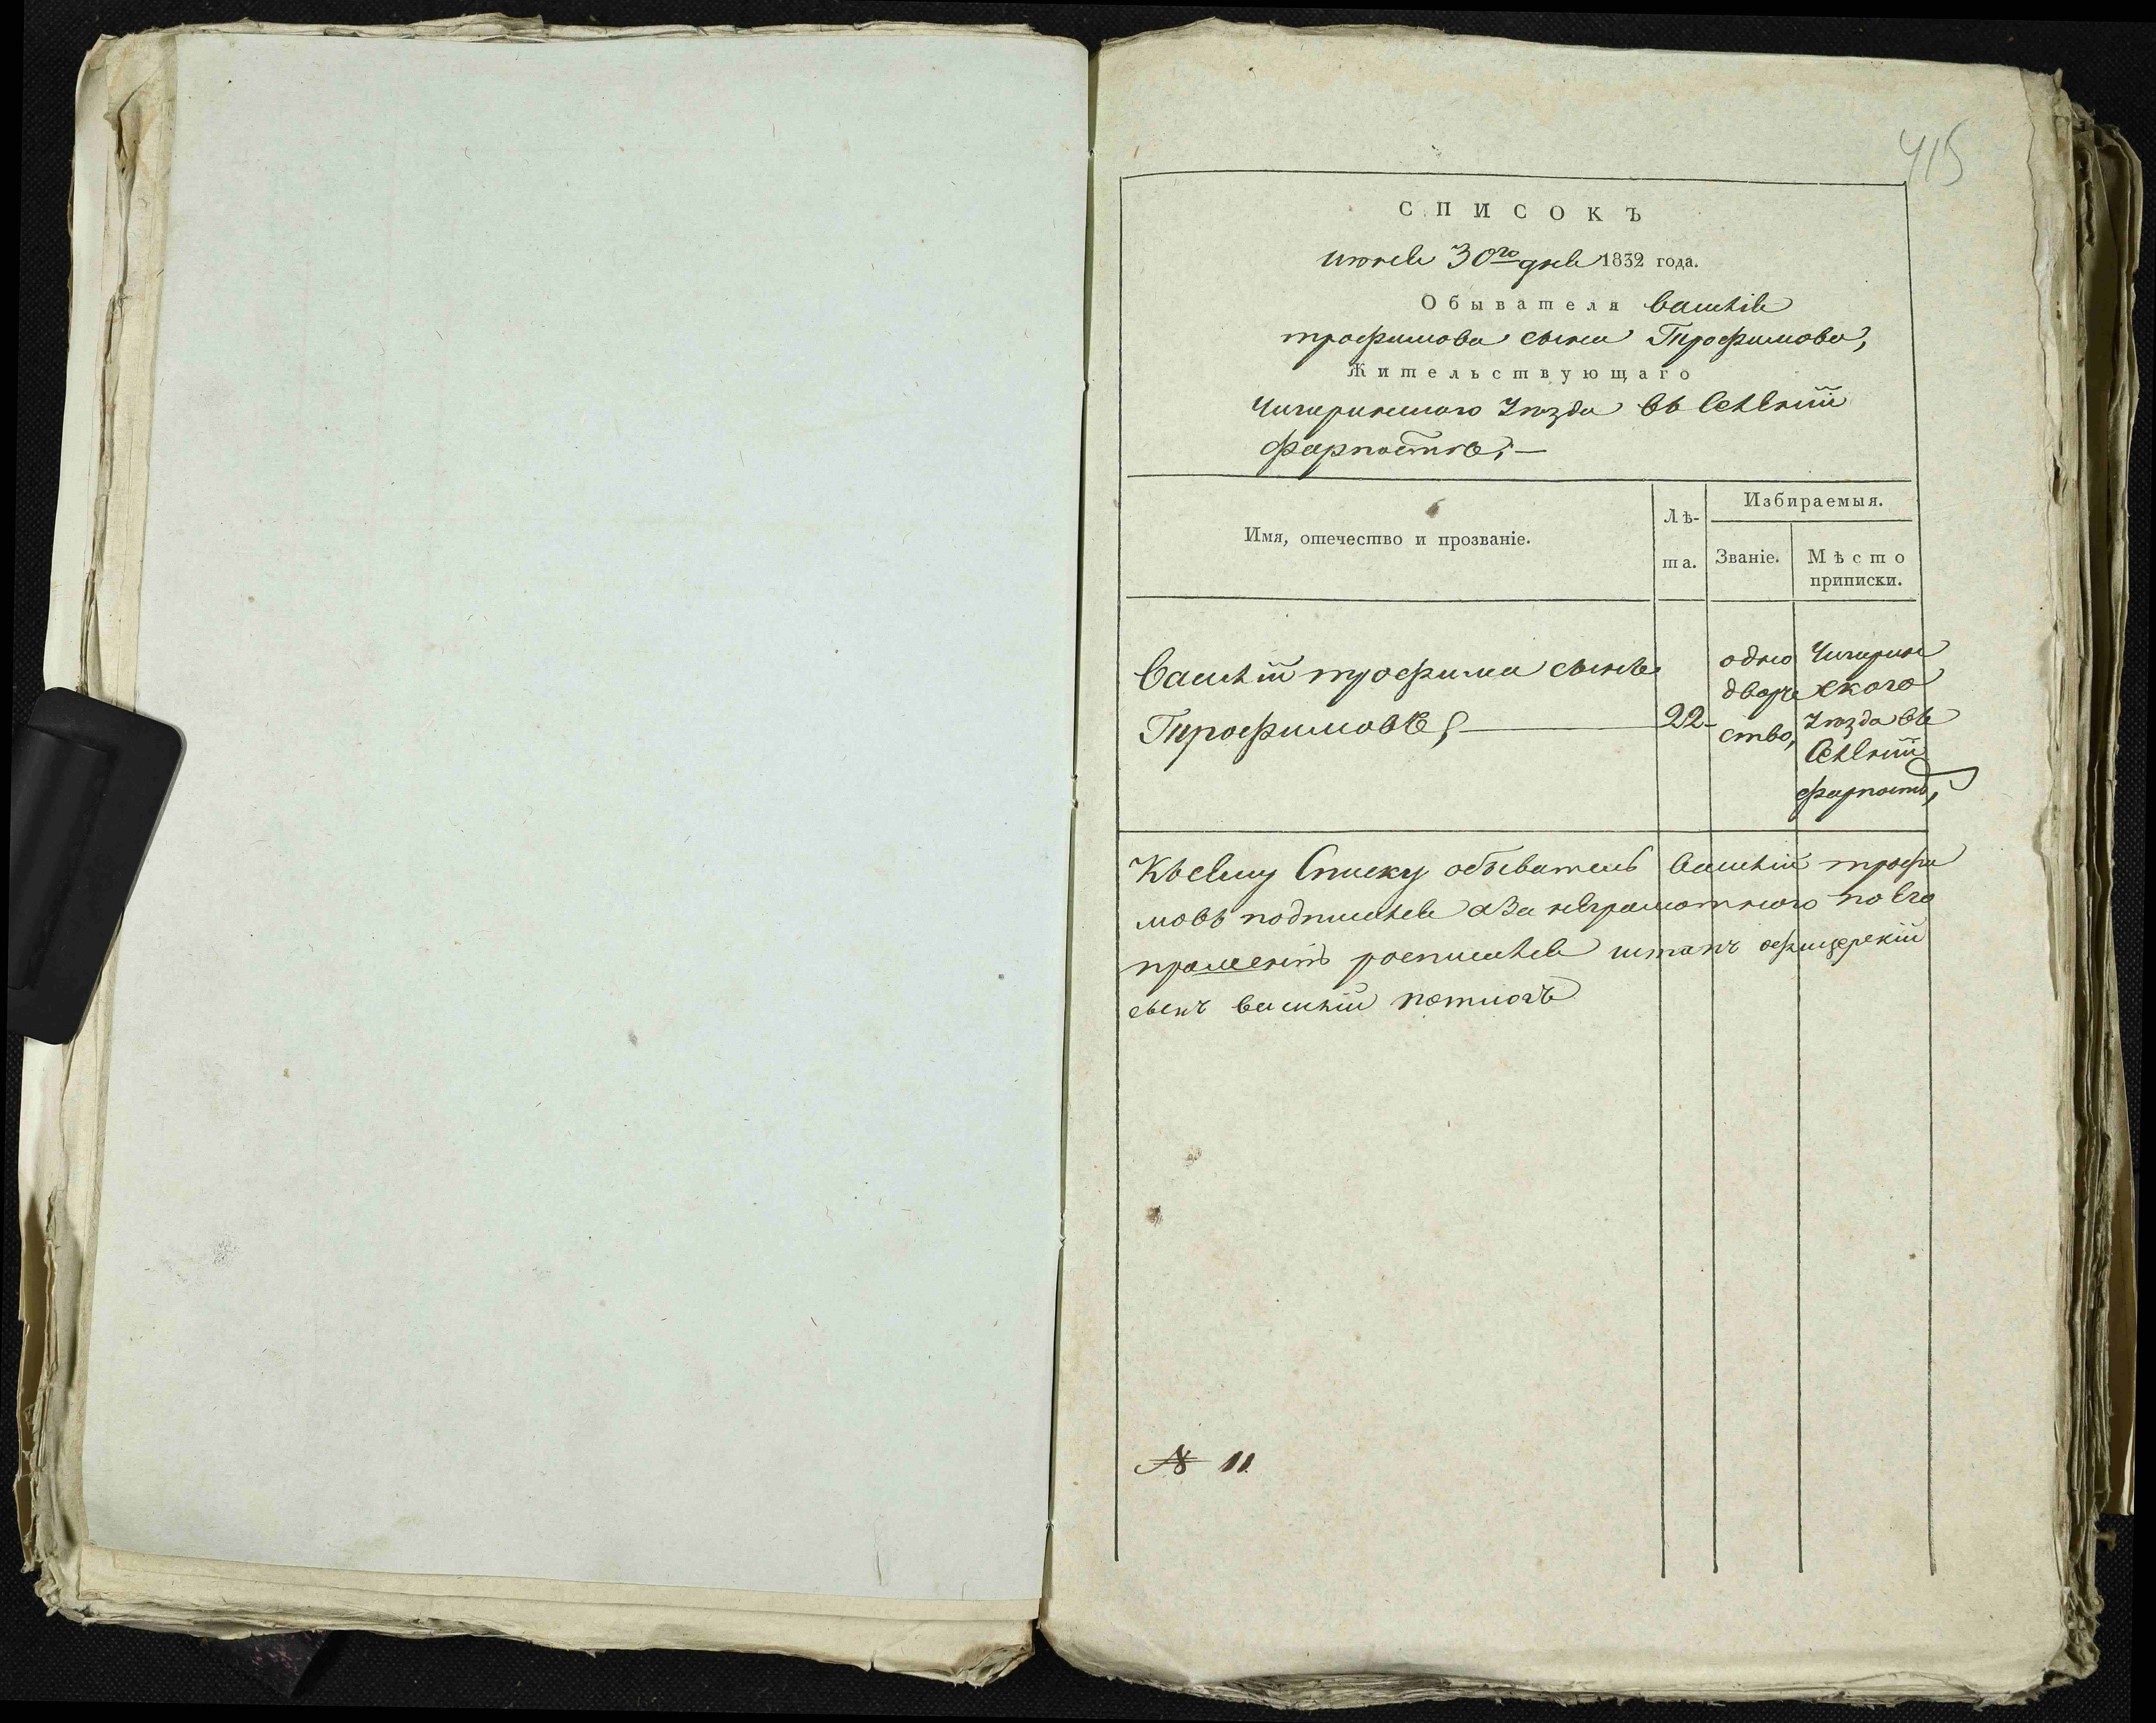 415
СПИСОКЪ
июня 30го дня 1832 года.
Обывателя василія
трофимова сына Трофимова,
Жительствующаго
Чигиринского Уѣзда въ
форпостѣ,—
Имя, отечество и прозваніе.
Лѣ-
та.
Избираемыя.
Званіе.
Мѣсто
приписки.
василій трофима сынъ
Трофимовъ,
22-
одно
дворче
ство,
Чигирин
ского
Уѣзда въ
форпостъ,
Къ сему Списку обыватель василій трофи
мовъ подписался а За неграмотного по его
прошенію росписался штапъ офицерскій
сынъ василій
№ 11